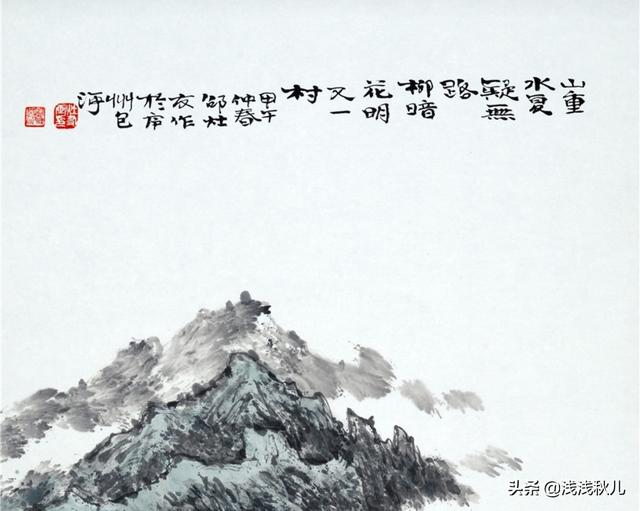 山重
水复
疑無
路
柳暗
花明
又一
村
甲午
仲春
邵灶
友作
於
艸包
头条 @浅浅秋儿